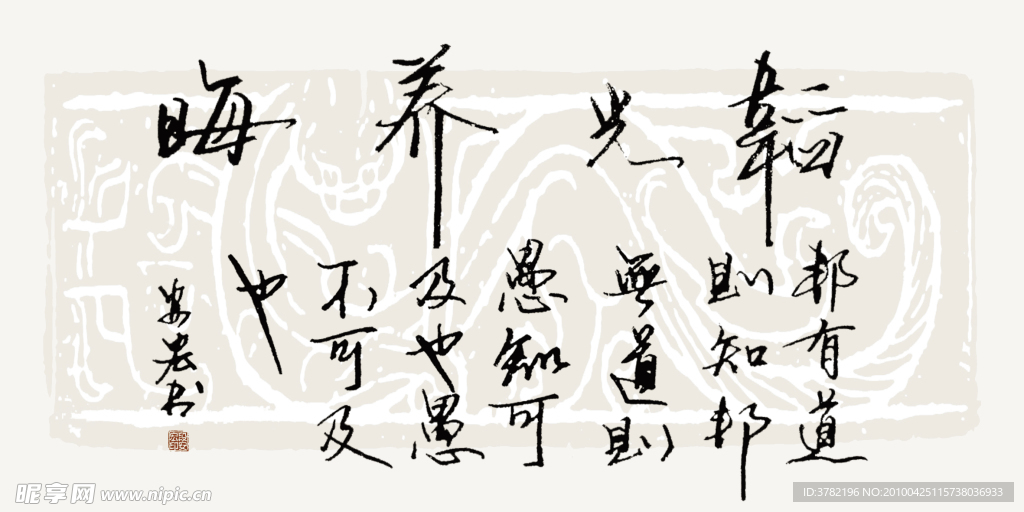 韬光养晦
邦有道
则知邦
无道则
愚知可
及也愚
不可及
也
昵享网 www.nipic.cn
ID:3782196 NO:20100425115738036933